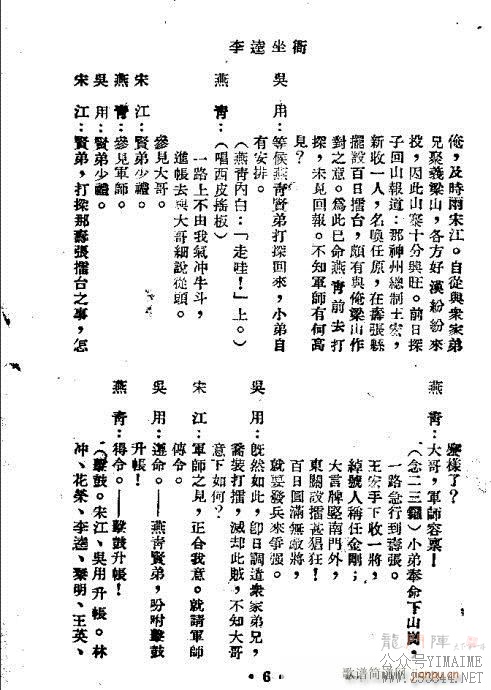 李逵坐衙
俺，及時雨宋江。自從與衆家弟
兄聚義梁山，各方好漢紛紛來
投，因此山寨十分興旺。前日探
子回山報道：那神州總制王宏，
新收一人，名喚任原，在壽張縣
擺設百日擂台，頗有與俺梁山作
對之意。爲此已命燕青前去打
探，未見回報。不知軍師有何高
見？
吳　用：等候燕青賢弟打探回來，小弟自
有安排。
（燕青內白：「走哇！」上。）
燕　青：（唱西皮搖板）
一路上不由我氣冲牛斗，
進帳去與大哥細說從頭。
參見大哥。
宋　江：賢弟少禮。
燕　青：參見軍師。
吳　用：賢弟少禮。
宋　江：賢弟，打探那壽張擂台之事，怎
麽樣了？
燕　青：大哥，軍師容稟！
（念二三鑼）小弟奉命下山崗，
一路急行到壽張。
王宏手下收一將，
綽號人稱任金剛；
大言牌竪南門外，
東關設擂甚猖狂！
百日圓滿無敵將，
就要發兵來爭强。
吳　用：既然如此，卽日調遣衆家弟兄，
喬裝打擂，滅却此賊，不知大哥
意下如何？
宋　江：軍師之見，正合我意。就請軍師
傳令。
吳　用：遵命。——燕青賢弟，吩咐擊鼓
升帳！
燕　青：得令。——擊鼓升帳！
（擊鼓。宋江、吳用升帳。林
冲、花榮、李逵、秦明、王英、
·6·
公众号YIMAIME
歌谱简谱网